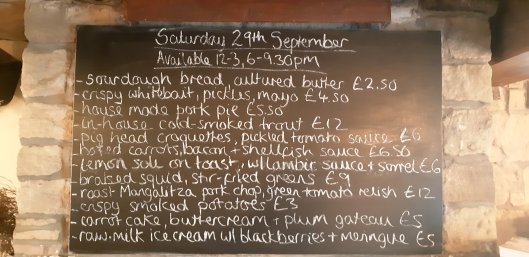 Saturday 29th September
Available 12-3, 6-9.30pm
-sourdough bread, cultured butter £2.50
-crispy whitebait, pickles, mayo £4.50
-house made pork pie £5.50
-in-house cold-smoked trout £12
-pig head croquettes, pickled tomato sauce £6
-hoted carrots, bacon + shellfish sauce £6.50
-lemon sole on toast, w/ lamber sauce + sorrel £6
-braised squid, stir-fried greens £9
-roast Mangalitza pork chop, green tomato relish £12
-crispy smoked potatoes £3
-carrot cake, buttercream + plum gateau £5
-raw-milk ice cream w/ blackberries + meringue £5